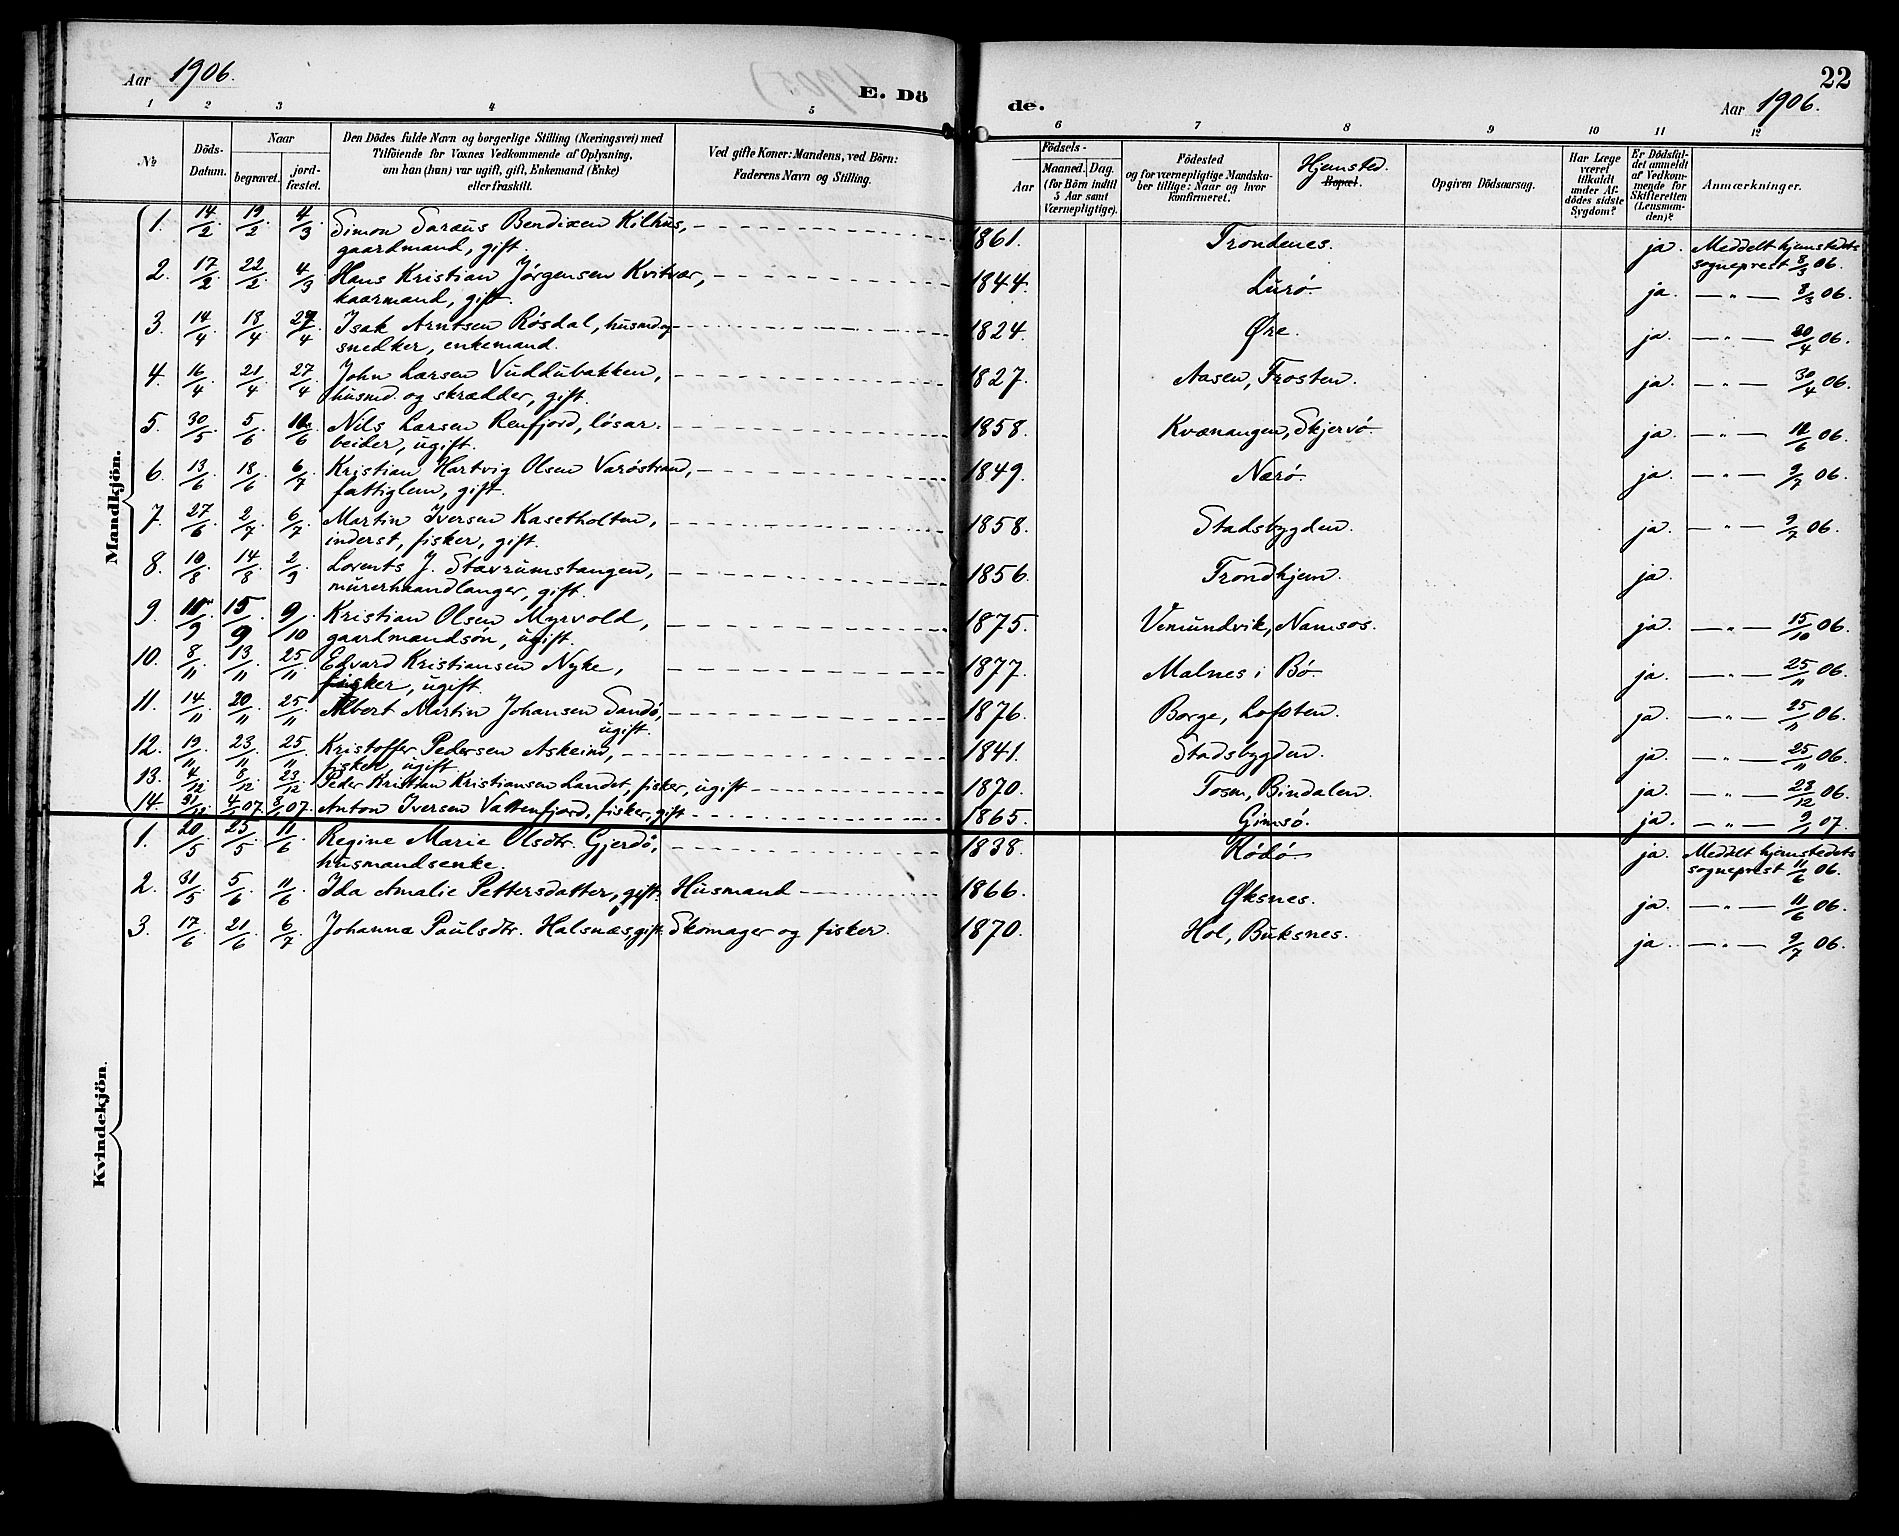 Aar 1906.
E. Dö
de.
22
Aar 1906.
1 2 3 4 5 6 7 8 9 10 11 12
No
Döds-
Datum.
Naar
begravet.
jord-
fæstet.
Den Dödes fulde Navn og borgerlige Stilling (Næringsvei) med
Tilföiende for Voxnes Vedkommende af Oplysning,
om han (hun) var ugift, gift, Enkemand (Enke)
eller fraskilt.
Ved gifte Koner: Mandens, ved Börn:
Faderens Navn og Stilling.
Födsels-
Aar
Maaned. Dag.
(for Börn indtil
5 Aar samt
Værnepligtige).
Födested
og for værnepligtige Mandska-
ber tillige: Naar og hvor
konfirmeret.
Hjemsted
Bopæl.
Opgiven Dödsaarsag.
Har Læge
været
tilkaldt
under Af-
dödes sidste
Sygdom?
Er Dödsfal-
det anmeldt
af Vedkom-
mende for
Skifteretten
(Lensman-
den)?
Anmærkninger.
Mandkjön.
1. 14/2 19/2 4/3 Simon Saraus Bendixen Kilhus, 1861. Trondenes. ja. Meddelt hjemstedets
gaardmand, gift. sogneprest 8/3 06.
2. 17/2 22/2 4/3 Hans Kristian Jørgensen Kvitvær, 1844. Lurø. ja — " — 8/3 06.
kaarmand, gift.
3. 14/4 18/4 27/4 Isak Arntsen Røsdal, husmd og 1824. Øre. ja. — " — 20/4 06.
snedker, enkemand.
4. 16/4 21/4 27/4 John Larsen Vuddubakken, 1827. Aasen, Frosten. ja. — " — 30/4 06.
husmd. og skrædder, gift.
5. 30/5 5/6 /6 Nils Larsen Renfjord, løsar- 1858. Kvænangen, Skjervø. ja — " — /6 06.
beider, ugift.
6. 13/6 18/6 6/7 Kristian Hartvig Olsen Varøstrand, 1849. Nærø. ja. — " — 9/7 06.
fattiglem, gift.
7. 27/6 2/7 6/7 Martin Iversen Kasetholten, 1858. Stadsbygden. ja. — " — 9/7 06.
inderst, fisker, gift.
8. 10/8 14/8 2/9 Lorents J. Stavrumstangen, 1856. Trondhjem. ja.
murerhaandlanger, gift.
9. /9 15/9 9/10 Kristian Olsen Myrvold, 1875. Vemundvik, Namsos. ja. — " — 15/10 06.
gaardmandsøn, ugift.
10. 8/11 13/11 25/11 Edvard Kristiansen Nyke, 1877. Malnes i Bø. ja. — " — 25/11 06.
fisker, ugift.
11. 14/11 20/11 25/11 Albert Martin Johansen Sandø, 1876. Borge, Lofoten. ja — " — 25/11 06.
ugift.
12. 19/11 23/11 25/11 Kristoffer Pedersen Askeim, 1841. Stadsbygden. ja. — " — 25/11 06.
fisker, ugift.
13. 4/12 8/12 23/12 Peder Kristian Kristiansen Landet, fisker, ugift 1870. Tosen, Bindalen. ja. — " — 23/12 06.
14. 31/12 4/1 07. 8/1 07. Anton Iversen Vattenfjord, fisker, gift 1865. Gimsø. ja. — " — 9/1 07.
Kvindekjön.
1. 20/5 25/5 11/6 Regine Marie Olsdtr. Gjerdø, 1838. Rødø ja. Meddelt hjemstedets
husmandsenke. sogneprest 11/6 06.
2. 31/5 5/6 11/6 Ida Amalie Pettersdatter, gift. Husmand 1866. Øksnes. ja. — " — 11/6 06.
3. 17/6 21/6 6/7 Johanna Paulsdtr. Halsnæs, gift. Skomager og fisker 1870. Hol, Buksnes. ja. — " — 9/7 06.